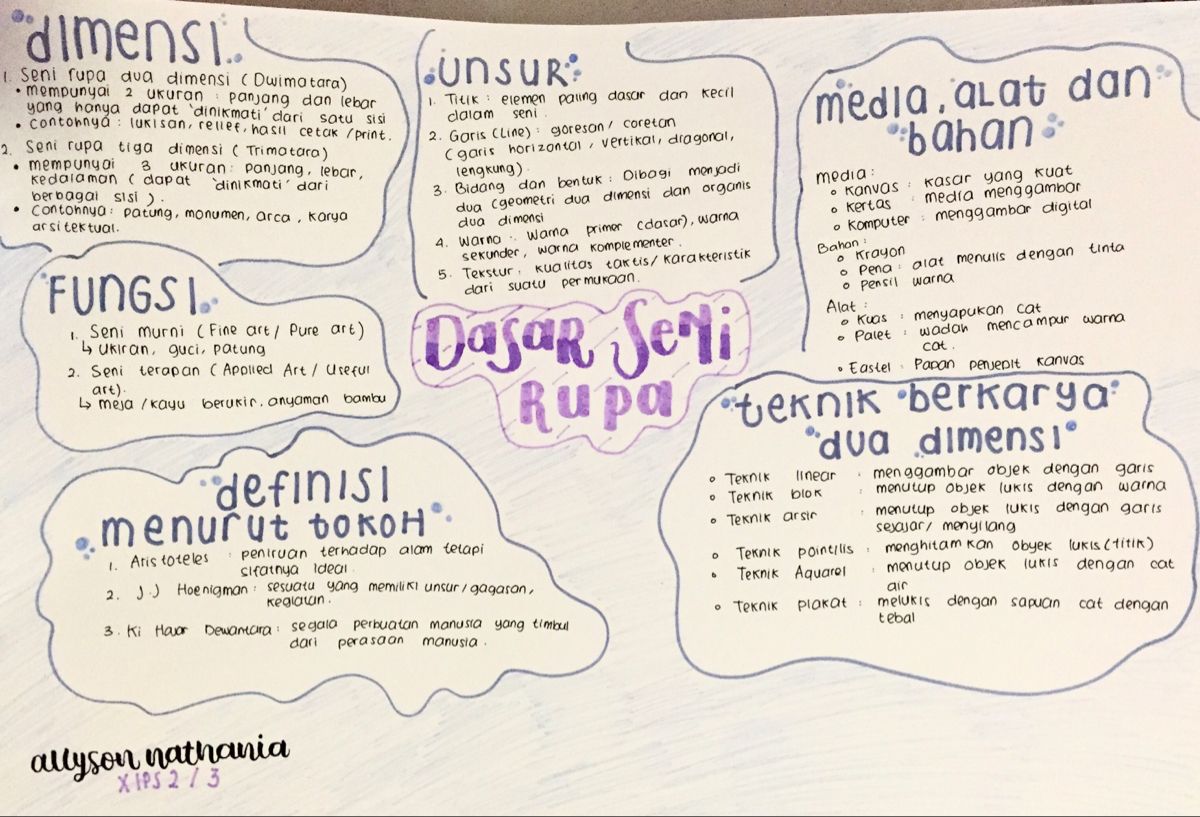 dimensi
1. Seni rupa dua dimensi (Dwimatara)
• mempunyai 2 ukuran : panjang dan lebar
yang hanya dapat 'dinikmati' dari satu sisi
• Contohnya : lukisan, relief, hasil cetak /print.
2. Seni rupa tiga dimensi (Trimatara)
• mempunyai 3 ukuran : panjang, lebar,
kedalaman (dapat 'dinikmati' dari
berbagai sisi).
• Contohnya : patung, monumen, arca, karya
arsitektual.
Unsur
1. Titik : elemen paling dasar dan kecil
dalam seni.
2. Garis (Line) : goresan/ coretan
(garis horizontal, vertikal, diagonal,
lengkung).
3. Bidang dan bentuk : Dibagi menjadi
dua (geometri dua dimensi dan organis
dua dimensi
4. Warna : Warna primer (dasar), warna
sekunder, warna komplementer.
5. Tekstur : kualitas taktis/ karakteristik
dari suatu permukaan.
media, alat dan
bahan
media :
Kanvas : kasar yang kuat
Kertas : media menggambar
Komputer : menggambar digital
Bahan :
Krayon
Pena : alat menulis dengan tinta
Pensil warna
Alat :
Kuas : menyapukan cat
Palet : wadah mencampur warna
cat.
Eastel : Papan penjepit kanvas
Fungsi
1. Seni murni (Fine art/ Pure art)
↳ ukiran, guci, patung
2. Seni terapan (Applied Art / Useful
art).
↳ meja /kayu berukir, anyaman bambu
Dasar Seni
Rupa
definisi
menurut tokoh
1. Aristoteles : peniruan terhadap alam tetapi
sifatnya ideal.
2. J.J Hoenigman : sesuatu yang memiliki unsur/gagasan,
kegiatan.
3. Ki Hajar Dewantara : segala perbuatan manusia yang timbul
dari perasaan manusia.
teknik berkarya
dua dimensi
Teknik linear : menggambar objek dengan garis
Teknik blok : menutup objek lukis dengan warna
Teknik arsir : menutup objek lukis dengan garis
sejajar/ menyilang
Teknik pointilis : menghitamkan obyek lukis (titik)
Teknik Aquarel : menutup objek lukis dengan cat
air
Teknik plakat : melukis dengan sapuan cat dengan
tebal
allyson nathania
X IPS 2 / 3